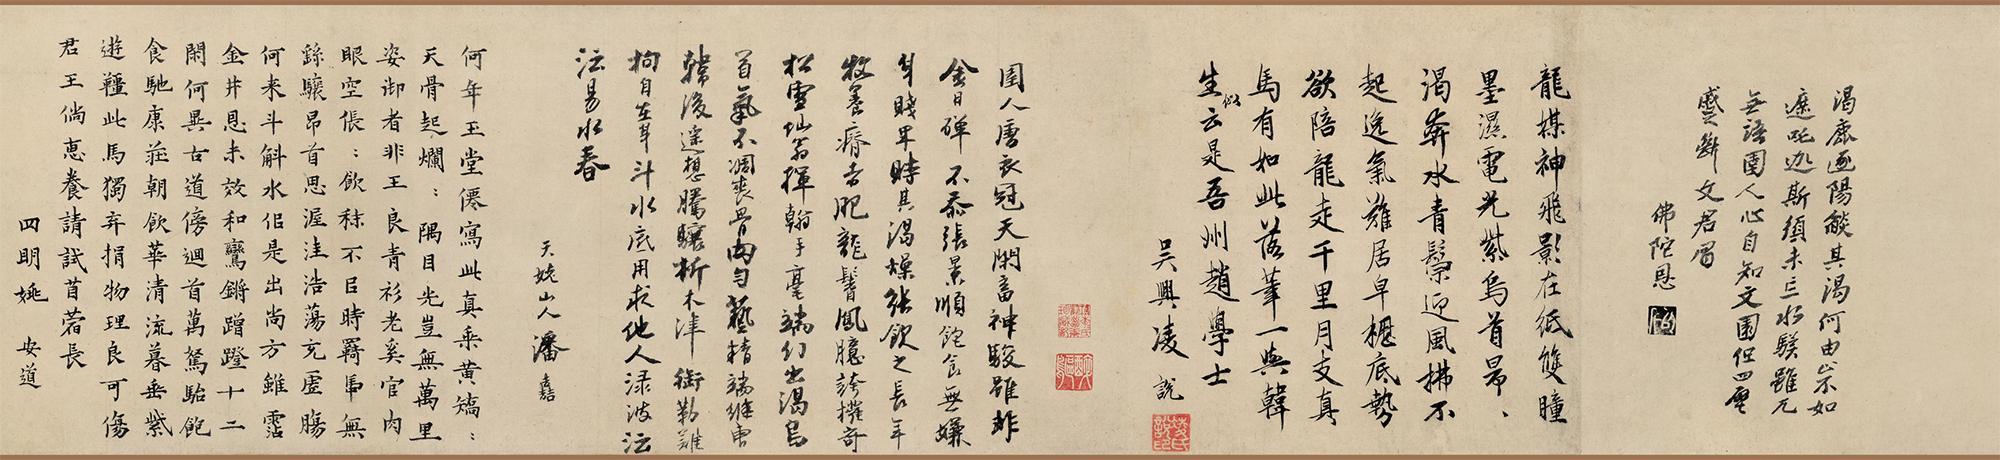 渴鹿逐陽燄其渴何由止不如
無語圉人心自知文園但四壁
蹙斷文君眉
佛陀恩
龍媒神飛影在紙雙瞳
墨濕電光紫烏首昂、
渴奔水青鬃迎風拂不
起逸氣難居早櫪底勢
欲陪龍走千里月支真
馬有如此落筆一與韓
生似云是吾州趙學士
吳興凌說
圉人唐衣冠天閑畜神駿雖非
金日磾不忝張景順飽食無嫌
牧養瘠者肥龍鬐鳳臆誇權奇
松雪仙翁揮翰手毫端幻出渴烏
首氣不凋喪骨肉勻藝精端繼唐
韓後遙想騰驤析木津銜勒難
拘自在身斗水底用求他人渌波沄
沄易水春
天姥山人潘嘉
何年玉堂僊寫此真乘黃矯:
天骨起爛:隅目光豈無萬里
姿御者非王良青衫老奚官肉
眼空倀:飲秣不以時羈馽無
繇驤昂首思渥洼浩蕩充虛腸
何來斗斛水侶是出尚方雖霑
金井恩未效和鸞鏘蹭蹬十二
閑何異古道傍迴首萬駑駘飽
食馳康莊朝飲華清流暮垂紫
遊韁此馬獨弃捐物理良可傷
君王倘惠養請試苜蓿長
四明姚安道